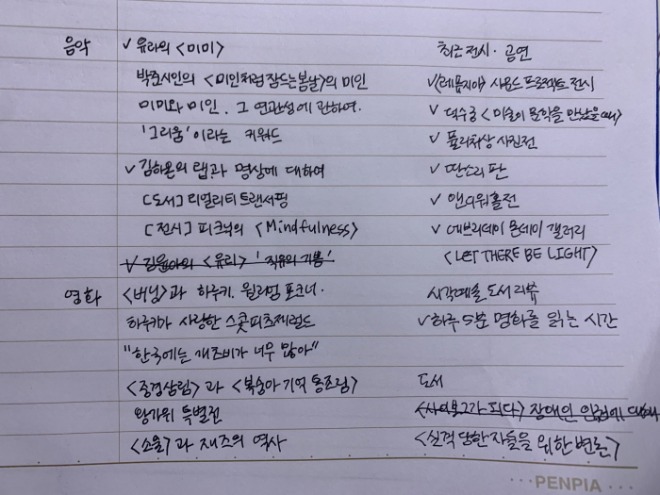 음악
✓ 유라의 <미미>
박준시인의 <미인처럼 잠드는 봄날>의 미인
미미와 미인. 그 연관성에 관하여.
'그리움'이라는 키워드
✓ 김하온의 랩과 명상에 대하여
[도서] 리얼리티 트랜서핑
[전시] 피크닉의 <Mindfulness>
✓ 김윤아의 <유리> '치유의 기쁨'
영화
<버닝>과 하루키. 윌리엄 포크너.
하루키가 사랑한 스콧피츠제럴드
"한국에는 개츠비가 너무 많아"
<중경삼림>과 <복숭아 기억 통조림>
왕가위 특별전
<소울>과 재즈의 역사
최근 전시·공연
✓ <레몬지아> 사운드 프로젝트 전시
✓ 덕수궁 <미술이 문학을 만났을 때>
✓ 퓰리처상 사진전
✓ 딴소리 판
✓ 앤디워홀전
✓ 에브리데이 몬데이 갤러리
<LET THERE BE LIGHT>
시각예술 도서 리뷰
✓ 하루 5분 명화를 읽는 시간
도서
<사이보그가 되다> 장애인 인권에 대하여
<실격 당한 자들을 위한 변론>
PENPIA